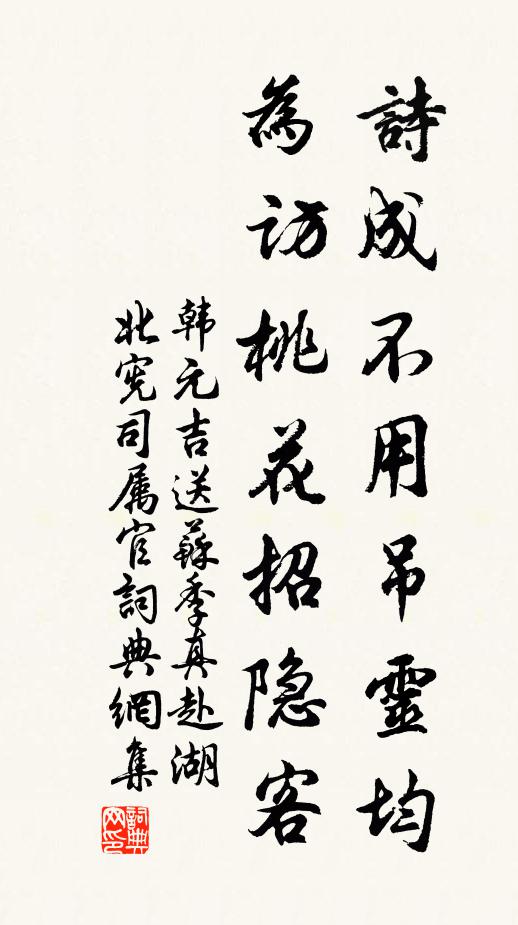 詩成不用吊靈均
為訪桃花招隐客
韩元吉送蘇季真赴湖
北宪司属官詞典網集
詞典网印